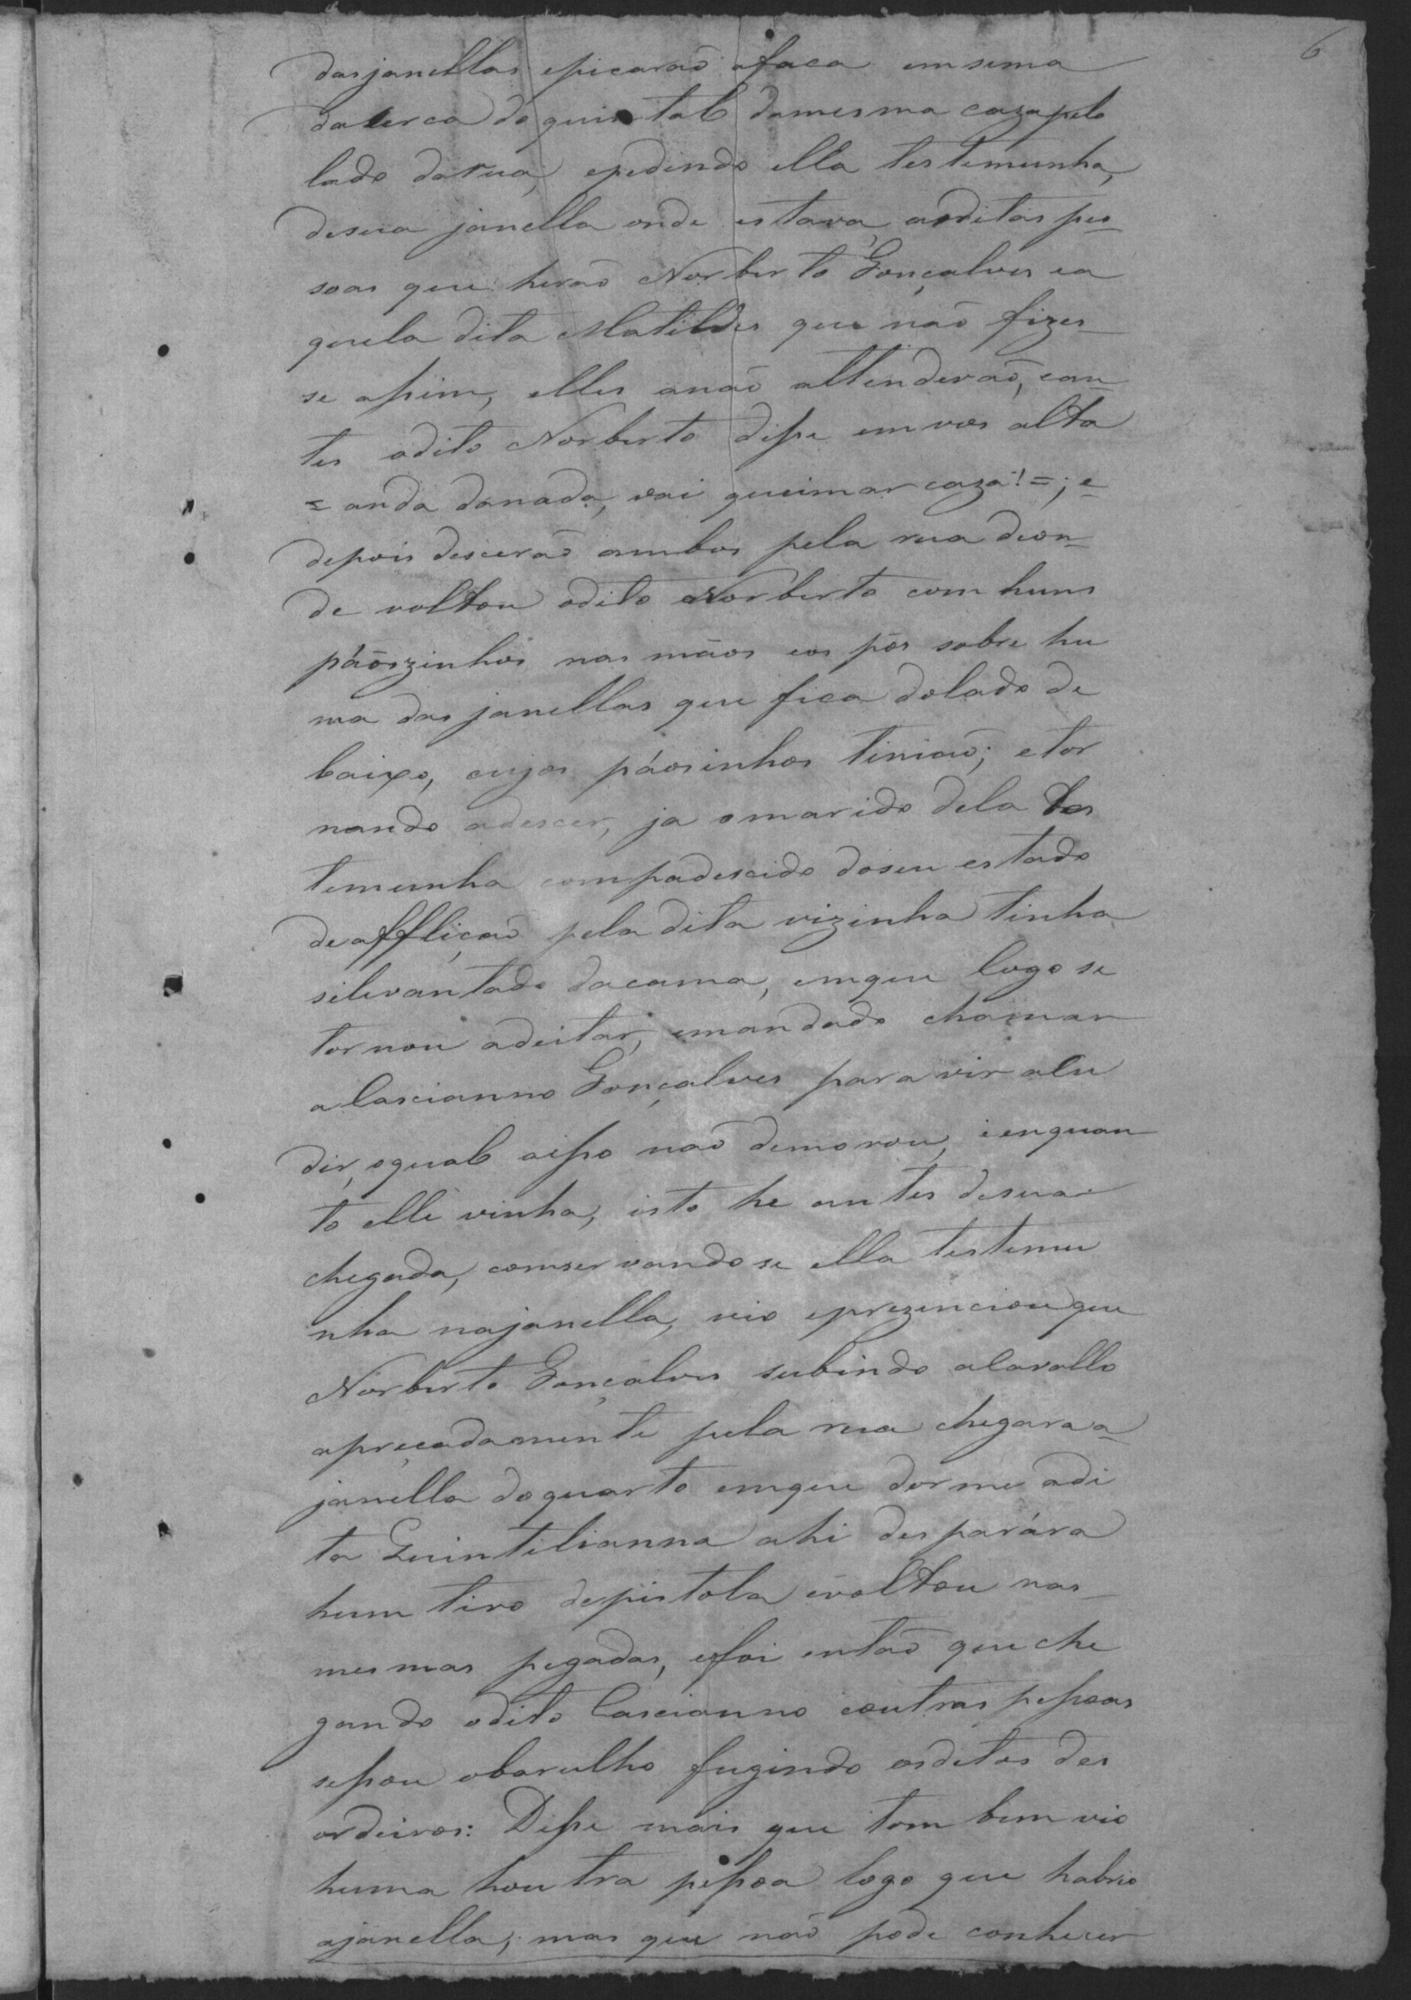 6
das janellas epicarão afaca emsima
dacerca do quintal damesma caza pelo
lado darua, epedindo ella testemunha,
desua janella onde estava, asditas pes-
soas que herão Norberto Gonçalves ea
quela dita Matildes que não fizes-
se assim, elles anaõ attenderaõ, ean-
tes odito Norberto disse emvos alta
= anda danada, vai queimar caza! = ; e
depois descerão ambos pela rua deon-
de voltou odito Norberto com huns
páoszinhos nas mãos eos pôs sobre hu
ma das janellas que fica dolado de
baixo, cujos páosinhos tinião; etor
nando adescer, ja omarido dela tes
temunha compadescido doseu estado
deafflição pela dita vizinha tinha
selevantado dacama, emque logo se
tornou adeitar, emandado chamar
a Cascianno Gonçalves para vir acu
dir, oqual aisso não demorou, eenquan
to elle vinha, isto he antes desua
chegada, comservandose ella testemu
nha najanella, vio eprezenciou que
Norberto Gonçalves subindo acavallo
apreçadamente pela rua chegara a
janella doquarto emque dorme adi
ta Quintilianna ahi desparára
hum tiro depistola evoltou nas
mesmas pegadas, efoi então que che
gando odito Cascianno eoutras pessoas
sessou obarulho fugindo osditos des
ordeiros: Disse mais que tombem vio
huma houtra pessoa logo que habrio
ajanella, mas que não pode conhecer